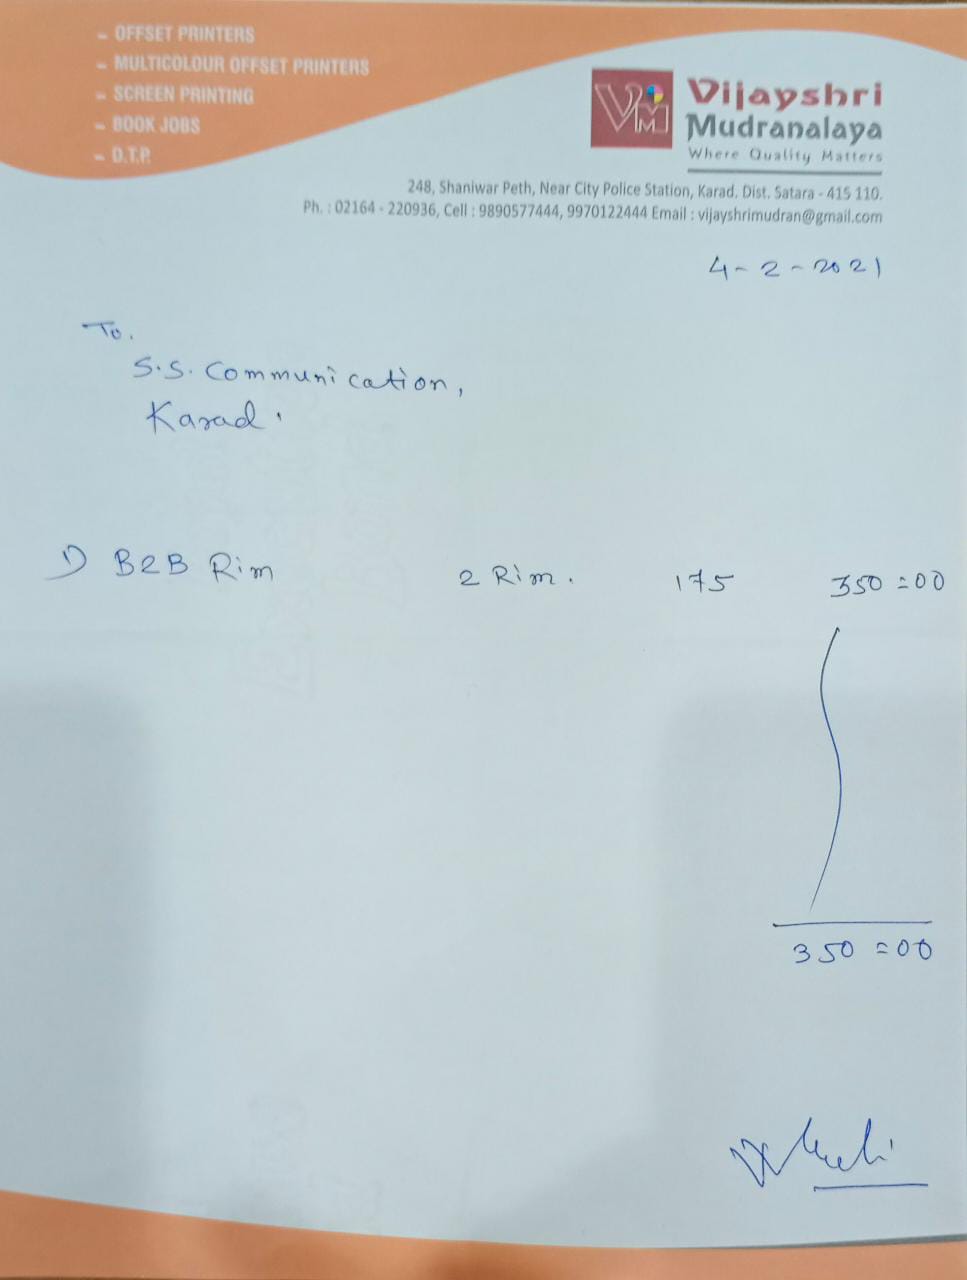 - OFFSET PRINTERS
- MULTICOLOUR OFFSET PRINTERS
- SCREEN PRINTING
- BOOK JOBS
- D.T.P.
VM
Vijayshri
Mudranalaya
Where Quality Matters
248, Shaniwar Peth, Near City Police Station, Karad. Dist. Satara - 415 110.
Ph. : 02164 - 220936, Cell : 9890577444, 9970122444 Email : vijayshrimudran@gmail.com
4-2-2021
To.
S.S. Communication,
Karad.
1) B2B Rim 2 Rim. 175 350=00
350=00